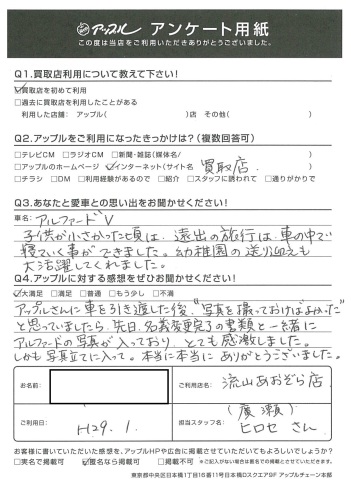 アップル アンケート用紙
この度は当店をご利用いただきありがとうございました。
Q1.買取店利用について教えて下さい!
☑買取店を初めて利用
□過去に買取店を利用したことがある
利用した店舗: アップル( )店 その他( )
Q2.アップルをご利用になったきっかけは?(複数回答可)
□テレビCM □ラジオCM □新聞・雑誌(媒体名/ )
□アップルのホームページ ☑インターネット(サイト名/ 買取店. )
□チラシ □DM □利用経験があるので □紹介 □スタッフに誘われて □通りがかりで
Q3.あなたと愛車との思い出をお聞かせください!
車名: アルファードV
子供が小さかった頃は、遠出の旅行は、車の中で
寝ていく事ができました。幼稚園の送り迎えも
大活躍してくれました。
Q4.アップルに対する感想をぜひお聞かせください!
☑大満足 □満足 □普通 □もう少し □不満
アップルさんに車を引き渡した後、"写真を撮っておけばよかった"
と思っていましたら、先日、名義変更完了の書類と一緒に
アルファードの写真が入っており、とても感激しました。
しかも写真立てに入って。本当に本当にありがとうございました。
お名前:
ご利用店名: 流山あおぞら店
ご利用日: H29. 1.
担当スタッフ名: (廣瀬) ヒロセ さん
お客様に書いていただいた感想を、アップルHPや広告に掲載させていただいてもよろしいでしょうか?
□実名で掲載可 ☑匿名なら掲載可 □掲載不可 ※ご記入がない場合は匿名での掲載とさせていただきます。
東京都中央区日本橋1丁目16番11号日本橋Dスクエア9F アップルチェーン本部